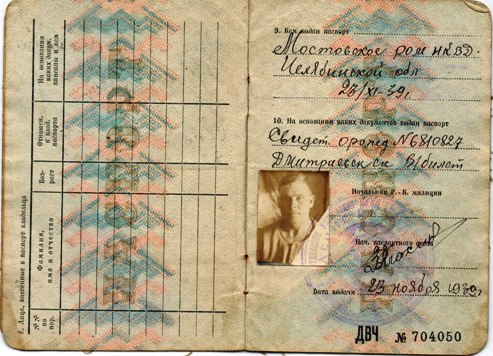 8. Лица, внесенные в паспорт владельца
№№ по пор.
Фамилия, имя и отчество
Возраст
Отношен. к влад. паспорта
На основании каких докум. внесена и кем
9. Кем выдан паспорт
Мостовское ром НКВД
Челябинской обл
23/XI-39г.
10. На основании каких документов выдан паспорт
Свидет. о рожд N6810827
в/билет
Начальник Р.-К. милиции
Нач. паспортного стола
Дата выдачи 23 ноября 1939г
ДВЧ № 704050